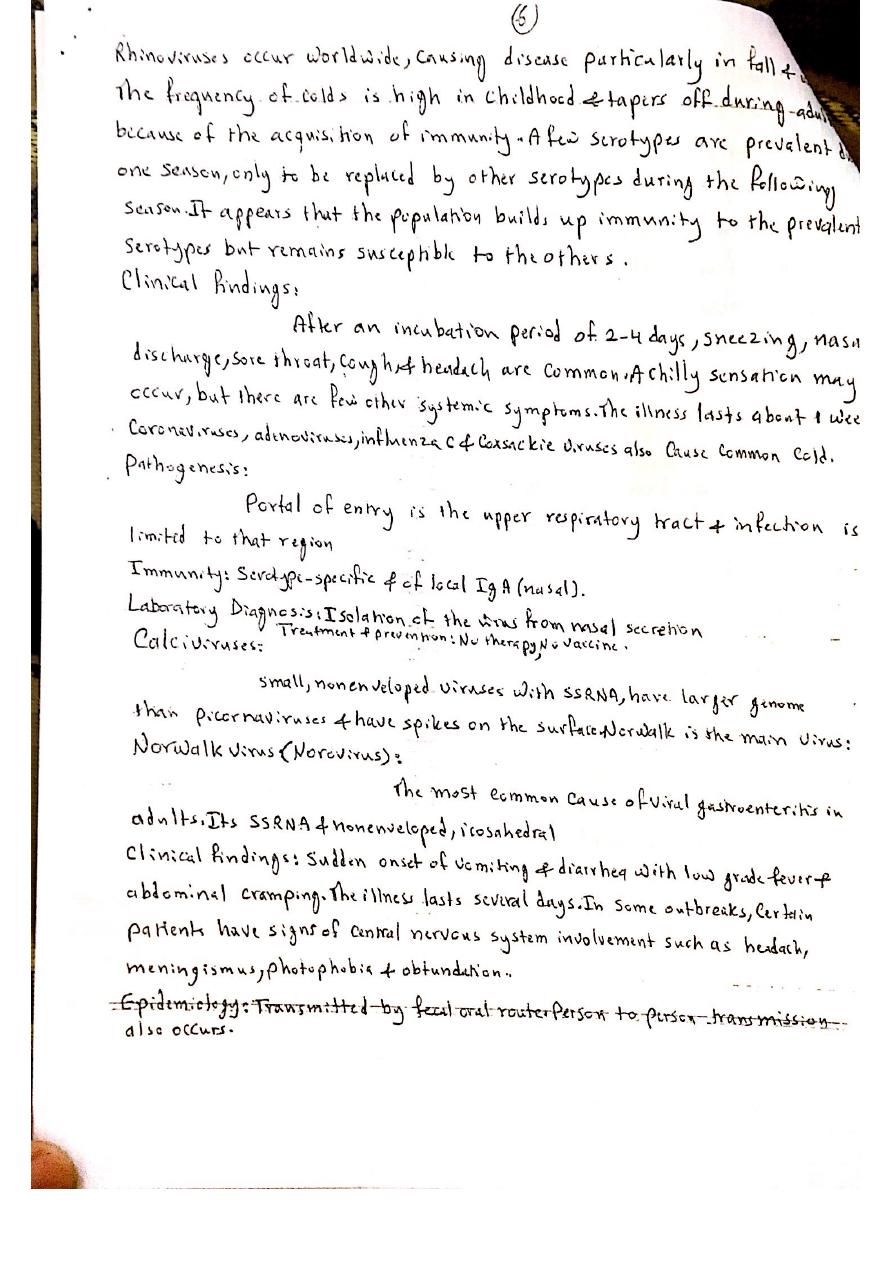 6
Rhinoviruses occur worldwide, causing disease particularly in fall &
The frequency of colds is high in childhood & tapers off during
because of the acquisition of immunity. A few serotypes are prevalent
one season, only to be replaced by other serotypes during the following
season. It appears that the population builds up immunity to the prevalent
serotypes but remains susceptible to the others.
Clinical findings:
After an incubation period of 2-4 days, sneezing,
discharge, sore throat, cough, & headach are common. A chilly sensation may
occur, but there are few other systemic symptoms. The illness lasts about 1
Coronaviruses, adenoviruses, influenza C & Coxsackie viruses also cause common cold.
Pathogenesis:
Portal of entry is the upper respiratory tract & infection is
limited to that region
Immunity: Serotype-specific & of local IgA (nasal).
Laboratory Diagnosis: Isolation of the virus from nasal secretion
Treatment & prevention: No therapy, No vaccine.
Calciviruses:
small, nonenveloped viruses with SSRNA, have larger genome
than picornaviruses & have spikes on the surface. Norwalk is the main virus:
Norwalk virus (Norovirus):
The most common cause of viral gastroenteritis in
adults. Its SSRNA & nonenveloped, icosahedral
Clinical findings: Sudden onset of vomiting & diarrhea with low grade fever &
abdominal cramping. The illness lasts several days. In some outbreaks, certain
patients have signs of central nervous system involvement such as headach,
meningismus, photophobia & obtundation..
Epidemiology: Transmitted by fecal oral route. Person to person transmission
also occurs.